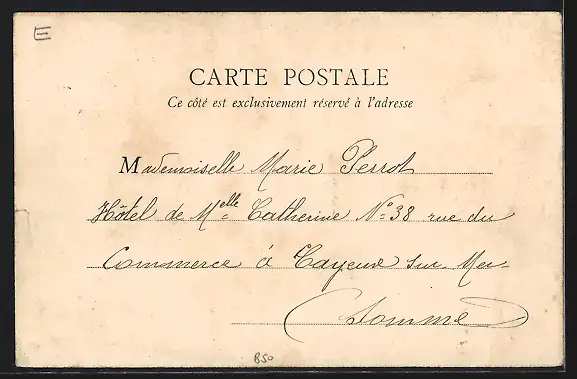 E
CARTE POSTALE
Ce côté est exclusivement réservé à l'adresse
Mademoiselle Marie Perrot
Hôtel de Melle Catherine No 38 rue du
Commerce à Cayeux sur Mer
(Somme)
B50